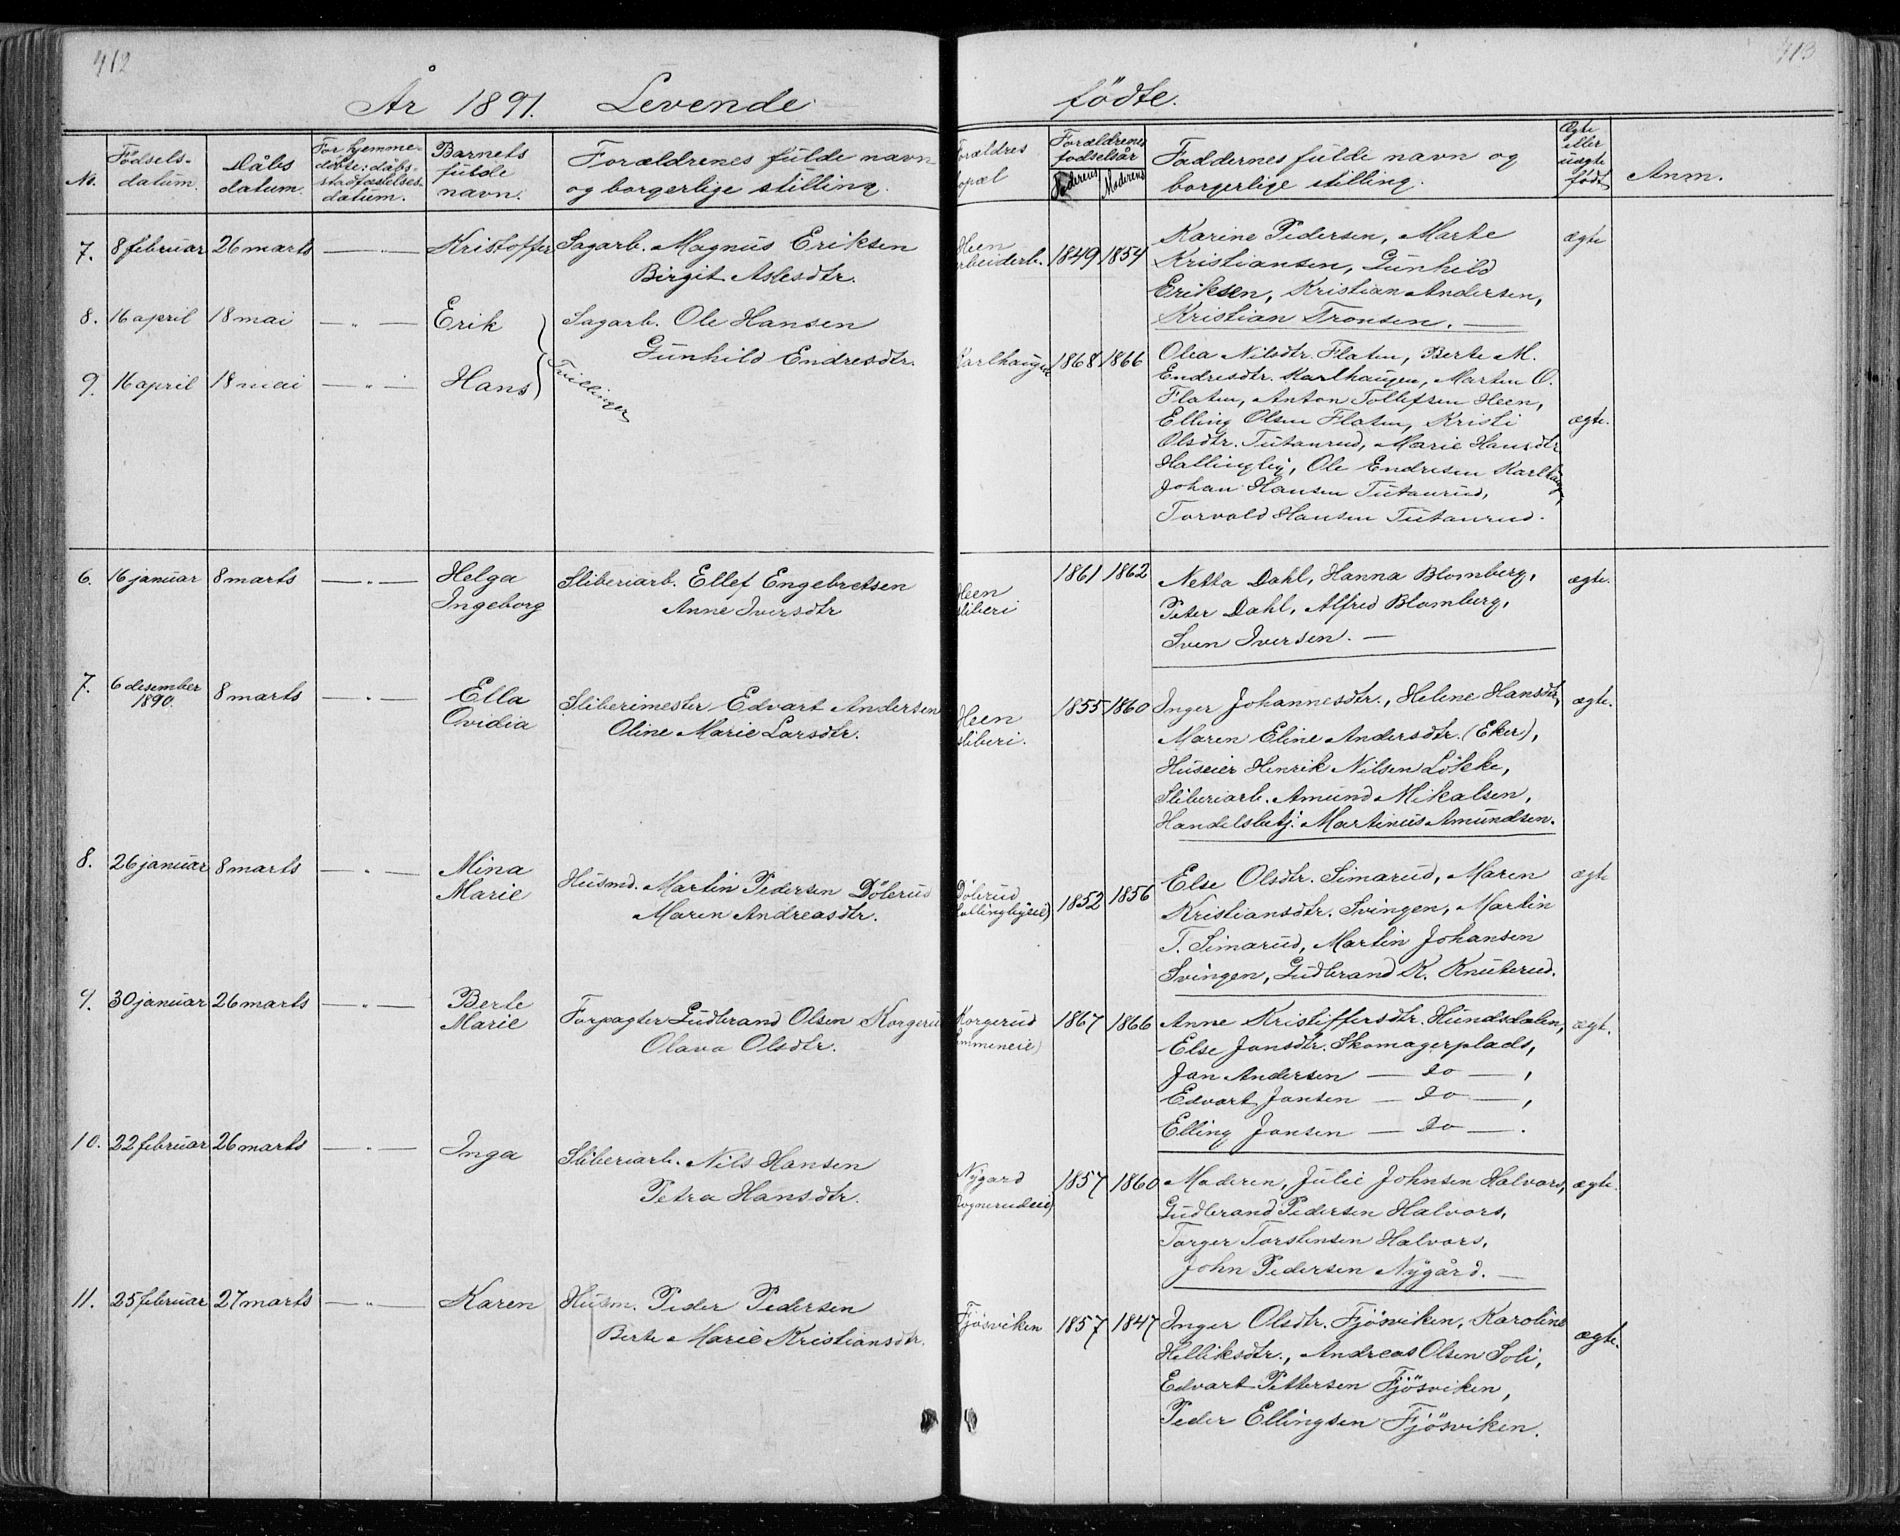 412
413
År 1891. Levende fødte.
No.
Fødsels-
datum.
Dåbs
datum.
For hjemme-
døbte: dåbs-
stadfæstelses-
datum.
Barnets
fulde
navn.
Forældrenes fulde navn
og borgerlige stilling.
Forældres
bopæl
Forældrenes
fødselsår
Faderens
Moderens
Faddernes fulde navn og
borgerlige stilling.
Ægte
eller
uægte
født
Anm.
7. 8 februar 26 marts — „ — Kristoffer Sagarb. Magnus Eriksen
Birgit Aslesdtr.
Heen
arbeiderb. 1849 1854
Karine Pedersen, Marte
Kristiansen, Gunhild
Eriksen, Kristian Andersen,
Kristian Tronsen. —
ægte
8. 16 april 18 mai — „ — Erik Sagarb. Ole Hansen
Gunhild Endresdtr.
9. 16 april 18 mai — „ — Hans
Tvillinger
Karlhaugen 1868 1866
Olea Nilsdtr. Flaten, Berte M.
Endresdtr. Karlhaugen, Marten O.
Flaten, Anton Tollefsen Heen,
Elling Olsen Flaten, Kristi
Olsdtr. Tutanrud, Marie Hansdtr
Hallingby, Ole Endresen Karlhaug,
Johan Hansen Tutanrud,
Torvald Hansen Tutanrud.
ægte.
6. 16 januar 8 marts — „ — Helga
Ingeborg
Sliberiarb. Ellef Engebretsen
Anne Iversdtr
Heen
sliberi
1861 1862
Netta Dahl, Hanna Blomberg,
Peter Dahl, Alfred Blomberg,
Sven Iversen. —
ægte.
7. 6 desember
1890. 8 marts — „ — Ella
Ovidia
Sliberimester Edvart Andersen
Oline Marie Larsdtr.
Heen
sliberi.
1855 1860
Inger Johannesdtr., Helene Hansdtr,
Maren Eline Andersdtr. (Eker),
Huseier Henrik Nilsen Løkke,
Sliberiarb. Amund Mikalsen,
Handelsbetj. Martinus Amundsen.
ægte.
8. 26 januar 8 marts — „ — Mina
Marie
Husmd. Martin Pedersen Dølerud
Maren Andreasdtr.
Dølerud
Hallingbyeie)
1852 1856
Else Olsdtr. Simarud, Maren
Kristiansdtr. Svingen, Martin
T. Simarud, Martin Johansen
Svingen, Gudbrand K. Knuterud.
ægte
9. 30 januar 26 marts — „ — Berte
Marie
Forpagter Gudbrand Olsen Korgerud
Olava Olsdtr.
Korgerud
1867 1866
Anne Kristoffersdtr. Hundsdalen,
Else Jonsdtr. Skomagerplads,
Jon Andersen — do — ,
Edvart Jonsen — do — ,
Elling Jonsen — do — .
ægt.
10. 22 februar 26 marts — „ — Inga
Sliberiarb. Nils Hansen
Petra Hansdtr.
Nygard
1857 1860
Moderen, Julie Johnsen Halvors,
Gudbrand Pedersen Halvors,
Torger Torstensen Halvors,
John Pedersen Nygård. —
ægte.
11. 25 februar 27 marts — „ — Karen
Husm. Peder Pedersen
Berte Marie Kristiansdtr.
Fjøsviken
1857 1847
Inger Olsdtr. Fjøsviken, Karoline
Helliksdtr., Andreas Olsen Soli,
Edvart Pettersen Fjøsviken,
Peder Ellingsen Fjøsviken.
ægte.